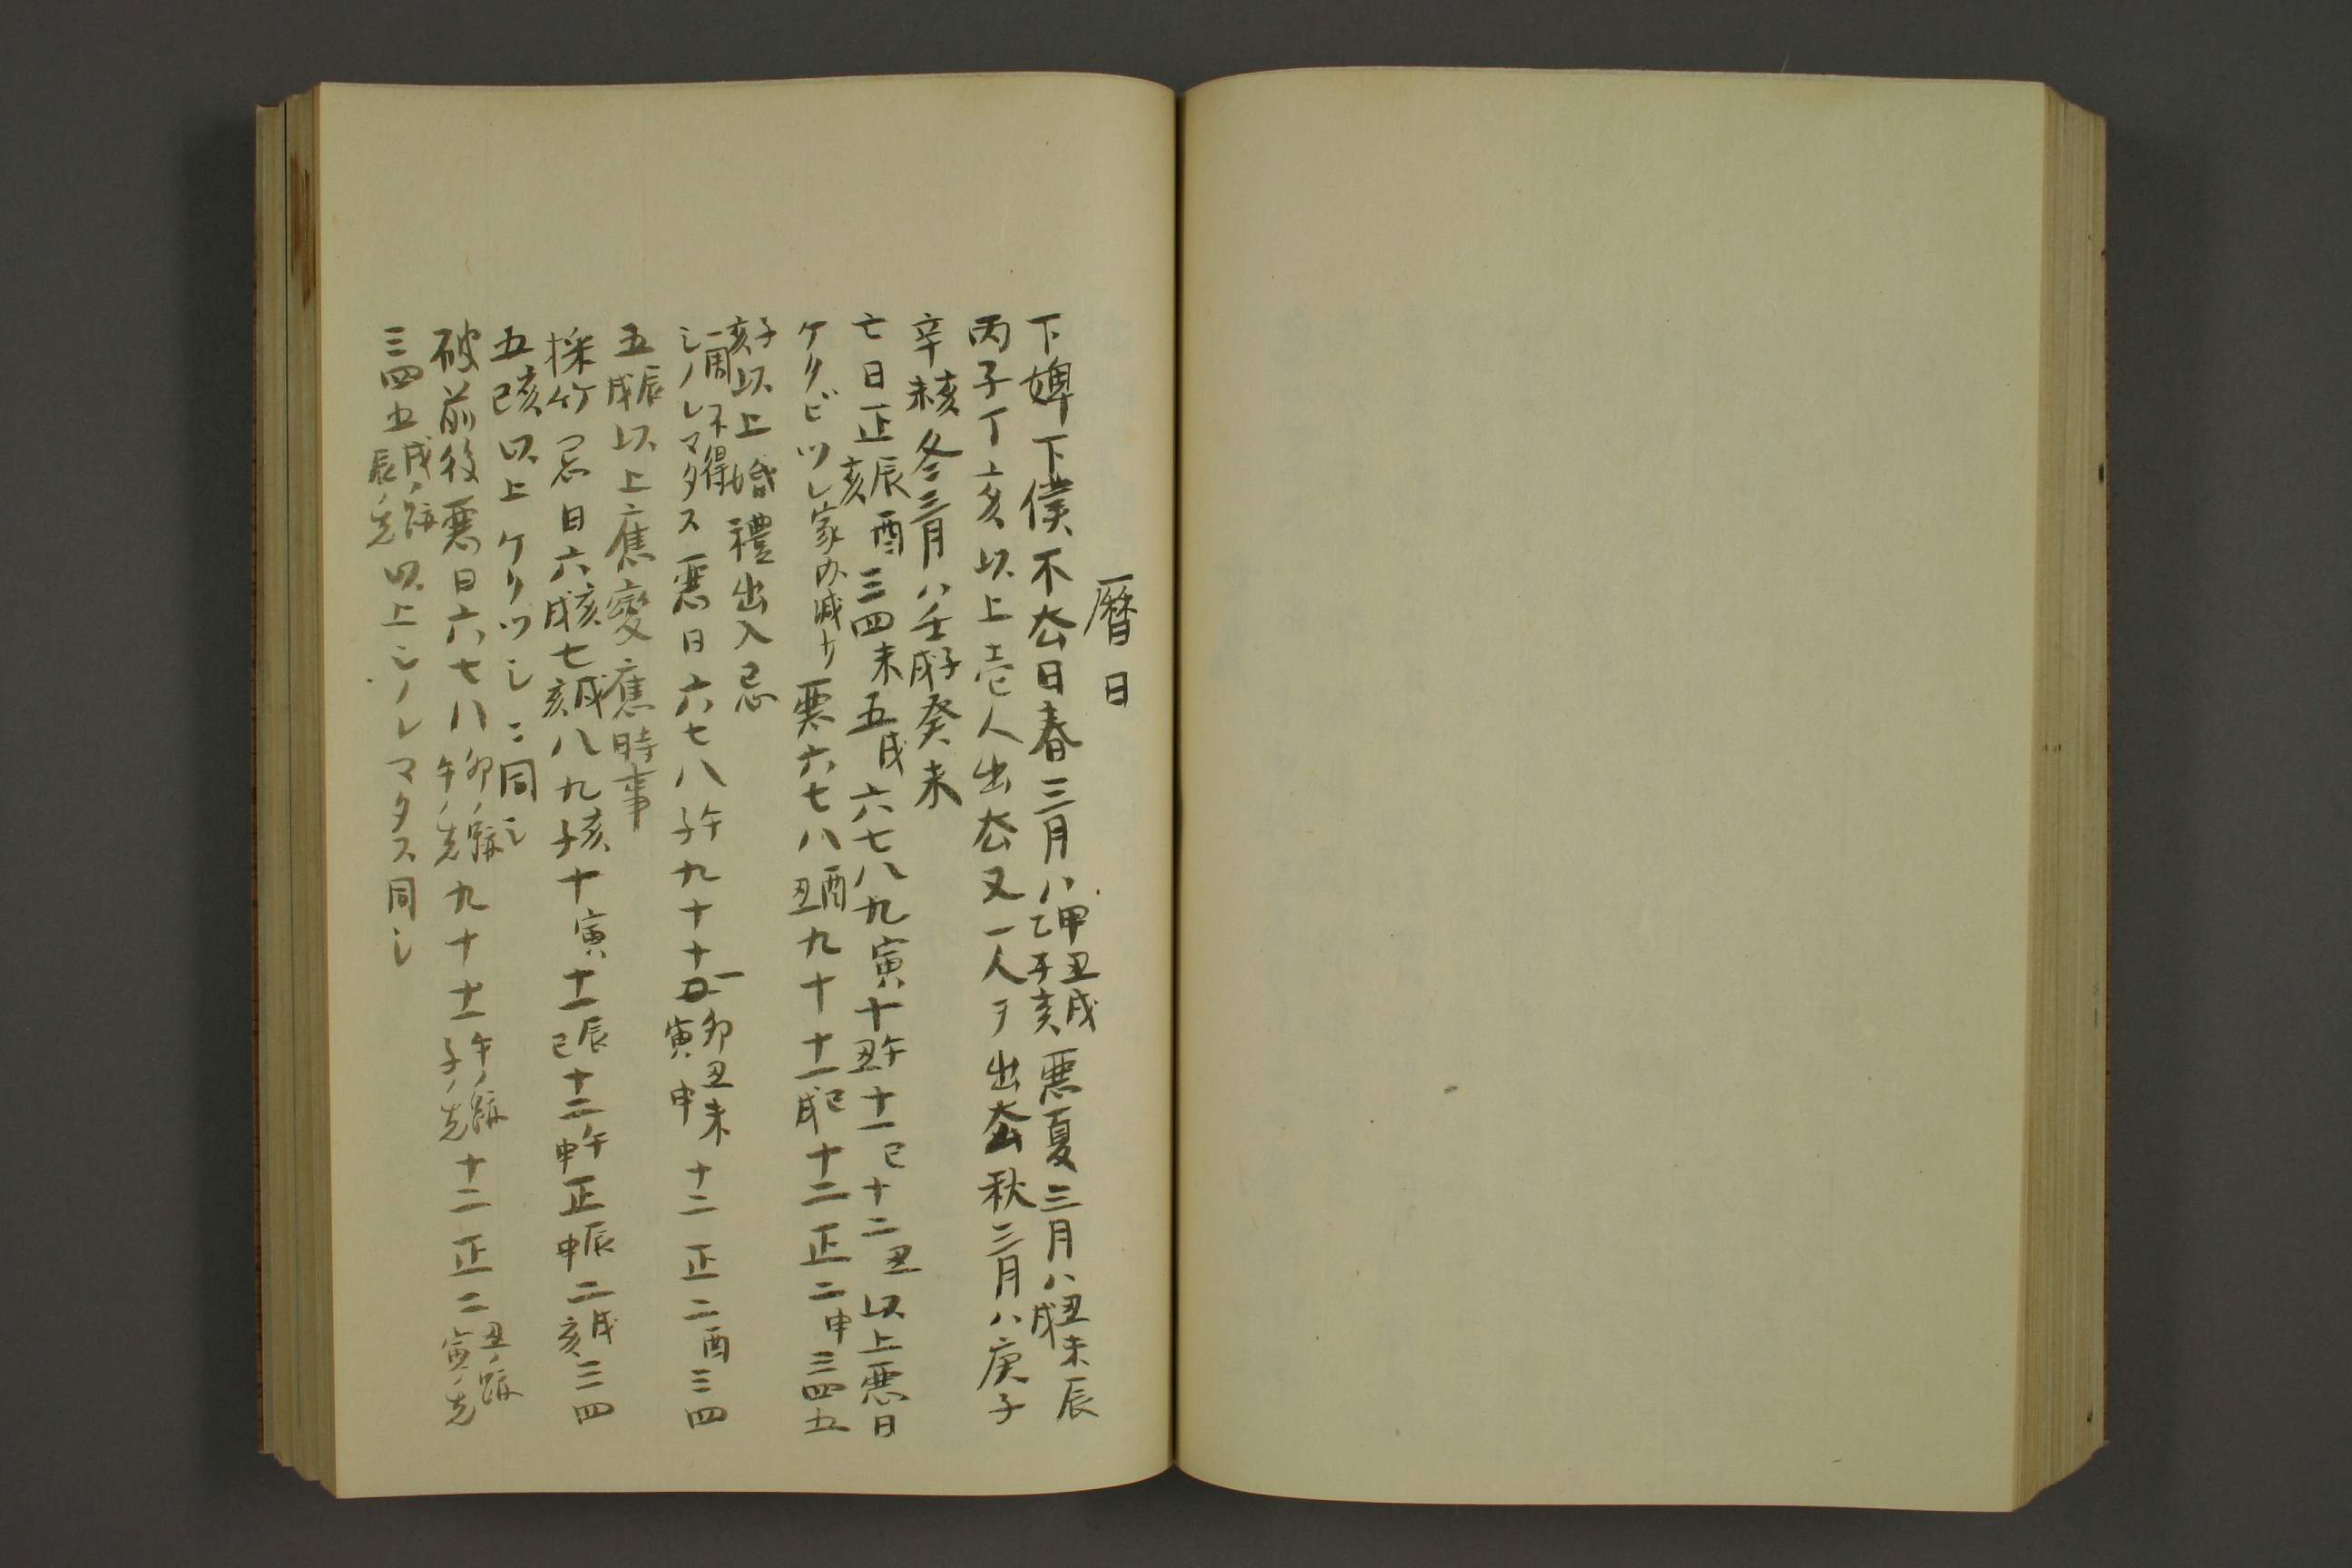 暦日
下婢下僕不厺日春三月ハ甲丑戌乙子亥悪夏三月ハ丑戌未辰
丙子丁亥以上壱人出厺又一人ヲ出厺秋三月ハ庚子
辛亥未冬三月ハ壬子戌癸未
亡日正辰亥酉三四未五戌六七八九寅十午丑十一巳十二丑以上悪日
ケタビツレ家内減ナリ悪六七八酉丑九十十一巳戌十二正二申三四五
子亥以上婚禮出入忌
一周不得
シノレマタス悪日六七八午子九十十一卯丑未寅申十二正二酉三四
五辰戌以上鷹變鷹時事
採竹忌日六亥戌七戌亥八九亥子十寅十一辰巳十二午申正辰申二戌亥三四
五亥巳以上ケタツシニ同シ
破前後悪日六七八卯ノ跡午ノ先九十十一午ノ跡子ノ先十二正二丑ノ跡寅ノ先
三四五戌ノ跡辰ノ先以上シノレマタス同シ